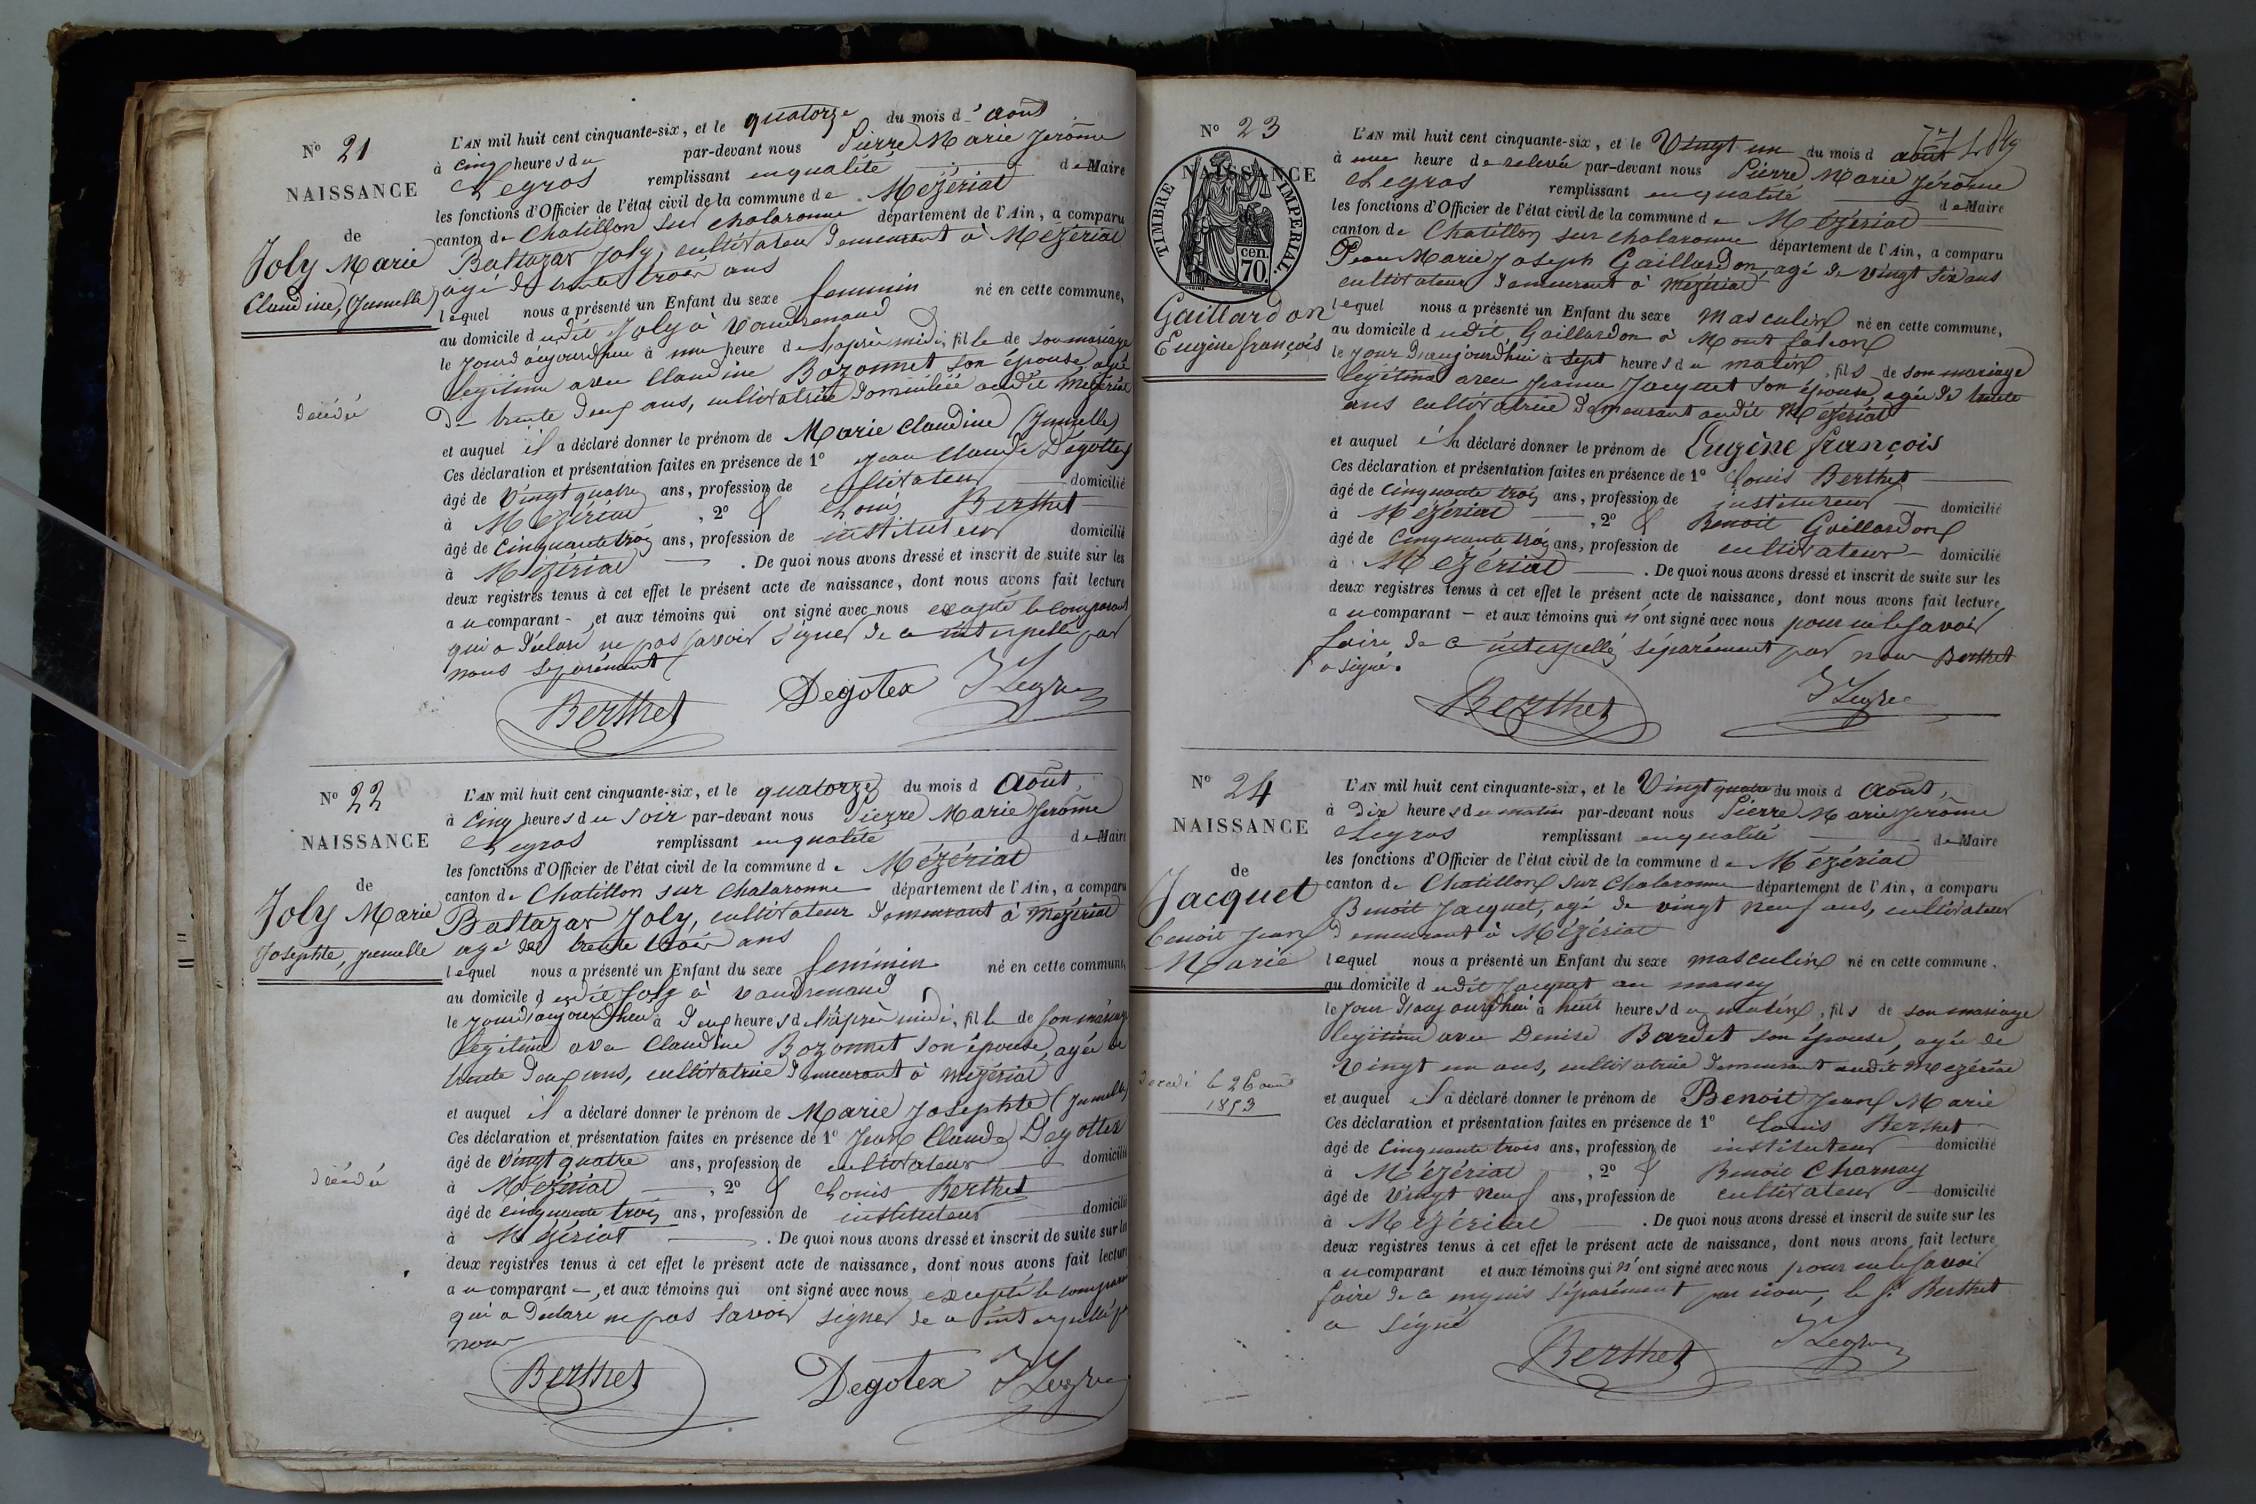 N° 21
NAISSANCE
de
Joly Marie
Claudine, (Jumelle)
décédé
L'AN mil huit cent cinquante-six, et le quatorze du mois d'août
à cinq heures du par-devant nous Pierre Marie Jérôme
Legros remplissant en qualité de Maire
les fonctions d'Officier de l'état civil de la commune de Mézériat
canton de Chatillon sur chalaronne département de l'Ain, a comparu
Baltazar Joly, cultivateur demeurant à Mézériat
agé de trente trois ans
lequel nous a présenté un Enfant du sexe feminin né en cette commune,
au domicile dudit Joly à Vaudrenaud
le jour d'aujourdhui à une heure de l'après midi, fille de son mariage
légitime avec Claudine Bozonnet son épouse, agée
De trente deux ans, cultivatrice domiciliée audit Mézériat
et auquel il a déclaré donner le prénom de Marie Claudine (Jumelle)
Ces déclaration et présentation faites en présence de 1° Jean Claude Degottex
âgé de Vingt quatre ans, profession de cultivateur domicilié
à Mézériat, 2° & Louis Berthet
âgé de cinquante trois ans, profession de instituteur domicilié
à Mézériat. De quoi nous avons dressé et inscrit de suite sur les
deux registres tenus à cet effet le présent acte de naissance, dont nous avons fait lecture
au comparant, et aux témoins qui ont signé avec nous excepté le comparant
qui a déclaré ne pas savoir signer de ce interpellé par
nous séparément
Berthet Degotex Legros
N° 22
NAISSANCE
de
Joly Marie
Josephte, jumelle
décédé
L'AN mil huit cent cinquante-six, et le quatorze du mois d Août,
à cinq heures du soir par-devant nous Pierre Marie Jérôme
Legros remplissant en qualité de Maire
les fonctions d'Officier de l'état civil de la commune de Mézériat
canton de Chatillon sur Chalaronne département de l'Ain, a comparu
Baltazar Joly, cultivateur demeurant à Mézériat
agé de trente trois ans
lequel nous a présenté un Enfant du sexe feminin né en cette commune,
au domicile dudit Joly à Vaudrenaud
le jour d'aujourdhui à deux heures de l'après midi, fille de son mariage
légitime avec Claudine Bozonnet son épouse, agée de
trente deux ans, cultivatrice demeurant à Mézériat
et auquel il a déclaré donner le prénom de Marie Josephte (jumelle)
Ces déclaration et présentation faites en présence de 1° Jean Claude Degottex
âgé de vingt quatre ans, profession de cultivateur domicilié
à Mézériat, 2° & Louis Berthet
âgé de cinquante trois ans, profession de instituteur domicilié
à Mézériat. De quoi nous avons dressé et inscrit de suite sur les
deux registres tenus à cet effet le présent acte de naissance, dont nous avons fait lecture
au comparant, et aux témoins qui ont signé avec nous excepté le comparant
qui a déclaré ne pas savoir signer de ce interpellé par
nous
Berthet Degotex Legros
N° 23
NAISSANCE
TIMBRE IMPERIAL
cen. 70
Gaillardon
Eugène françois
L'AN mil huit cent cinquante-six, et le Vingt un du mois d août
à une heure de relevée par-devant nous Pierre Marie Jérôme
Legros remplissant en qualité de Maire
les fonctions d'Officier de l'état civil de la commune de Mézériat
canton de Chatillon sur chalaronne département de l'Ain, a comparu
Jean Marie Joseph Gaillardon, agé de vingt six ans
cultivateur demeurant à Mézériat
lequel nous a présenté un Enfant du sexe masculin né en cette commune,
au domicile dudit Gaillardon à Mont falcon
le jour d'aujourd'hui à sept heures du matin, fils de son mariage
légitime avec Jeanne Jacquet son épouse, agée de trente
ans cultivatrice demeurant audit Mézériat
et auquel il a déclaré donner le prénom de Eugène françois
Ces déclaration et présentation faites en présence de 1° Louis Berthet
âgé de cinquante trois ans, profession de instituteur domicilié
à Mézériat, 2° & Benoit Gaillardon
âgé de cinquante trois ans, profession de cultivateur domicilié
à Mézériat. De quoi nous avons dressé et inscrit de suite sur les
deux registres tenus à cet effet le présent acte de naissance, dont nous avons fait lecture
au comparant et aux témoins qui n'ont signé avec nous pour ne le savoir
faire de ce interpellés séparément par nous Berthet
a signé.
Berthet Legros
N° 24
NAISSANCE
de
Jacquet
benoit Jean
Marie
décédé le 26 août
1853
L'AN mil huit cent cinquante-six, et le Vingt quatre du mois d Août,
à dix heures du matin par-devant nous Pierre Marie Jérôme
Legros remplissant en qualité de Maire
les fonctions d'Officier de l'état civil de la commune de Mézériat
canton de Chatillon sur Chalaronne département de l'Ain, a comparu
Benoit Jacquet, agé de vingt neuf ans, cultivateur
demeurant à Mézériat
lequel nous a présenté un Enfant du sexe masculin né en cette commune,
au domicile dudit Jacquet au maney
le jour d'aujourd'hui à huit heures du matin, fils de son mariage
légitime avec Denise Bardet son épouse, agée de
Vingt un ans, cultivatrice demeurant audit Mézériat
et auquel il a déclaré donner le prénom de Benoit Jean Marie
Ces déclaration et présentation faites en présence de 1° Louis Berthet
âgé de cinquante trois ans, profession de instituteur domicilié
à Mézériat, 2° & Benoit Charnay
âgé de Vingt neuf ans, profession de cultivateur domicilié
à Mézériat. De quoi nous avons dressé et inscrit de suite sur les
deux registres tenus à cet effet le présent acte de naissance, dont nous avons fait lecture
au comparant et aux témoins qui n'ont signé avec nous pour ne le savoir
faire de ce enquis séparément par nous, le sr. Berthet
a signé
Berthet Legros